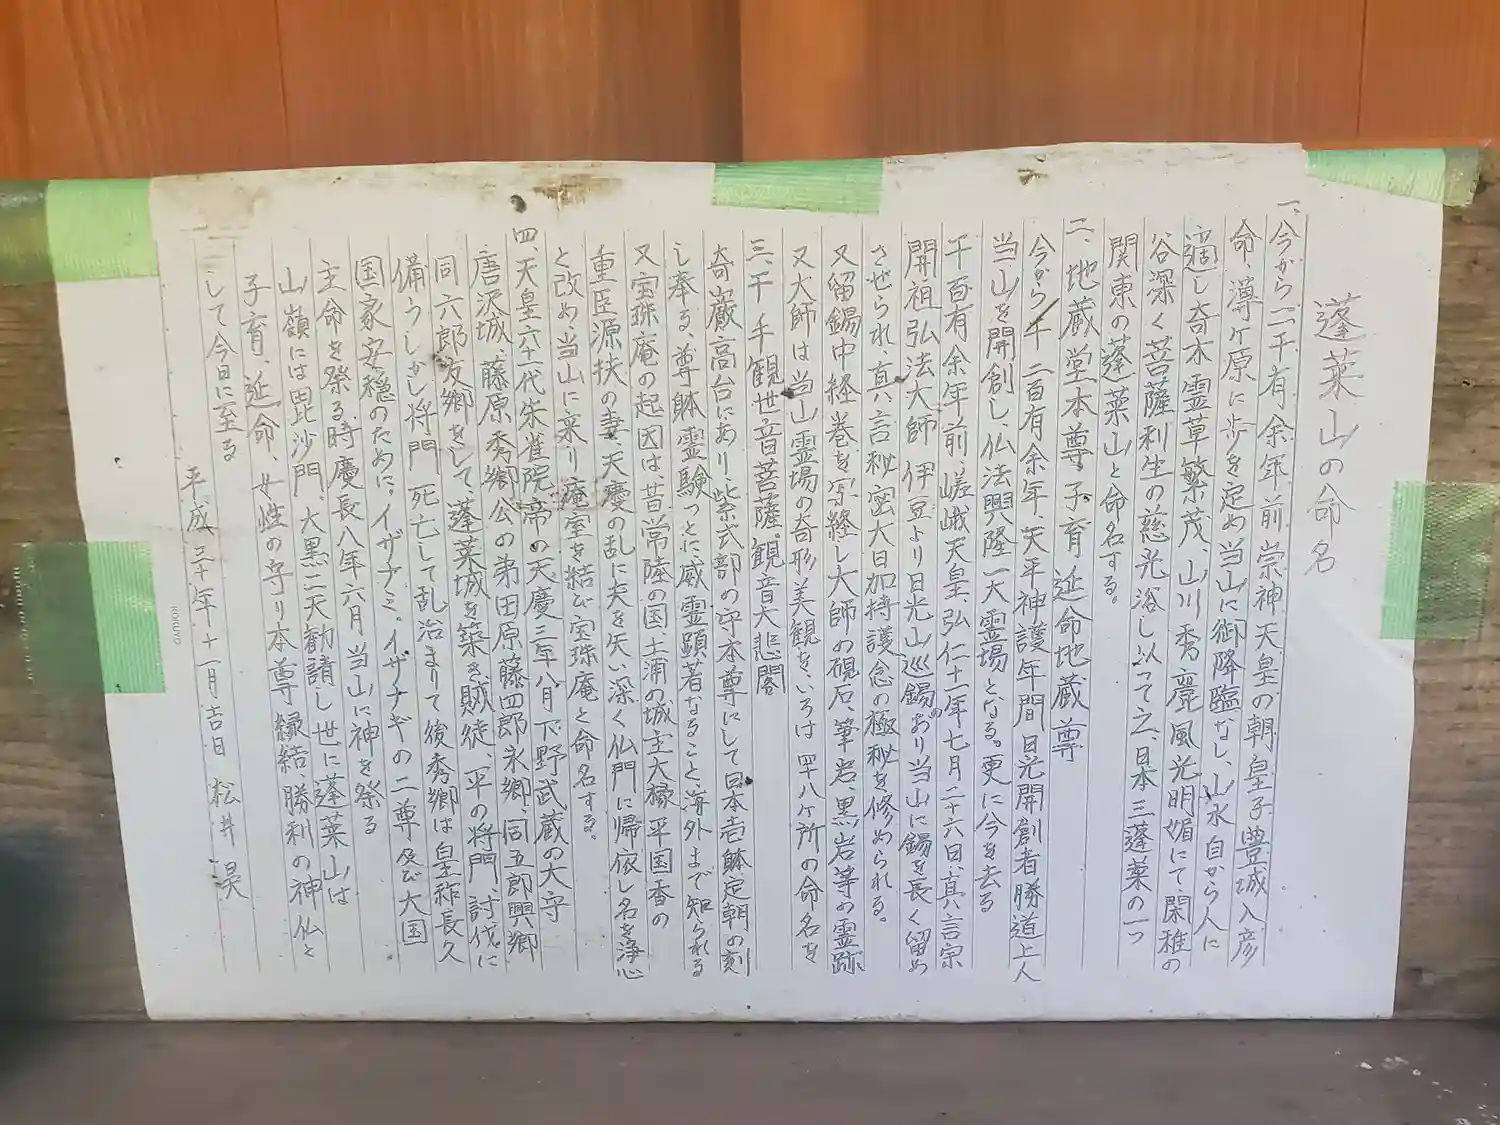 蓬莱山の命名
一、今から二千有余年前崇神天皇の朝皇子豊城入彦
命、漙ヶ原に歩を定め当山に御降臨なし、山水自から人に
適し奇木霊草繁茂、山川秀麗風光明媚にて閑雅の
谷深く菩薩利生の慈光浴し以って之、日本三蓬莱の一つ
関東の蓬莱山と命名する。
二、地蔵堂本尊子育延命地蔵尊
今から千二百有余年、天平神護年間日光開創者勝道上人
当山を開創し、仏法興隆一大霊場となる。更に今を去る
千百有余年前、嵯峨天皇、弘仁十一年七月二十六日、真言宗
開祖弘法大師伊豆より日光山巡錫のおり当山に錫を長く留め
させられ、真言秘密大日加持護念の極秘を修められる。
又留錫中経巻を写終し大師の硯石、筆岩、黒岩等の霊跡
又大師は当山霊場の奇形美観を、いろは四十八ヶ所の命名を
三、千手観世音菩薩。観音大悲閣
奇巌高台にあり紫式部の守本尊にして日本壱躰定朝の刻
し奉る、尊躰霊験つとに威霊顕著なること海外まで知られる
又宝珠庵の起因は、昔常陸の国、土浦の城主大掾平国香の
重臣源扶の妻、天慶の乱に夫を失い深く仏門に帰依し名を浄心
と改め、当山に来り庵室を結び宝珠庵と命名する。
四、天皇六十一代朱雀院帝の天慶三年八月下野武蔵の大守
唐沢城、藤原秀郷公の弟田原藤四郎永郷、同五郎興郷
同六郎友郷をして蓬莱城を築き賊徒平の将門、討伐に
備うしかし将門死亡して乱治まりて後秀郷は皇祚長久
国家安穏のために。イザナミ。イザナギの二尊及び大国
主命を祭る、時慶長八年六月当山に神を祭る
山嶺には毘沙門、大黒二天勧請し世に蓬莱山は
子育、延命、女性の守り本尊縁結、勝利の神仏と
して今日に至る
平成三十年十一月吉日 松井昊
KOKUYO